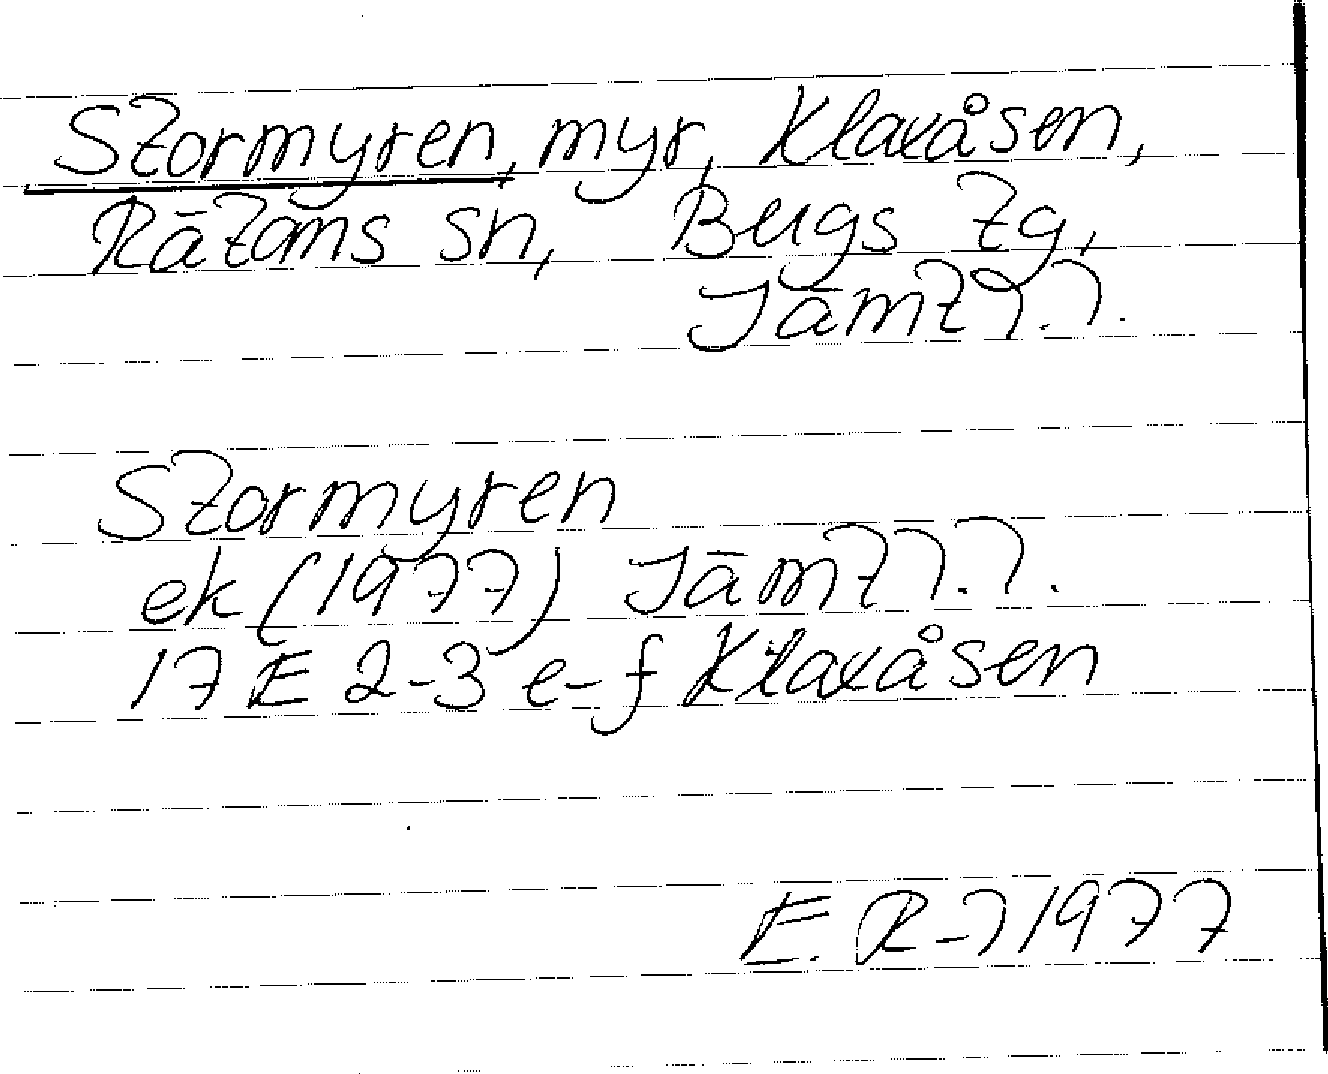 Stormyren, myr, Klaxåsen,
Rätans sn, Bergs tg,
Jämtl.
Stormyren
ek (1977) Jämtl.
17 E 2-3 e-f Klaxåsen
E. R-n 1977